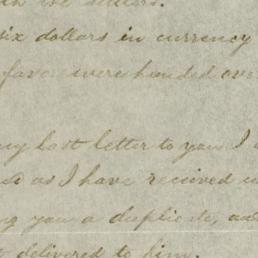 six dollars in currency
favor were handed over
my last letter to you I
as I have received
you a duplicate, and
delivered to him.